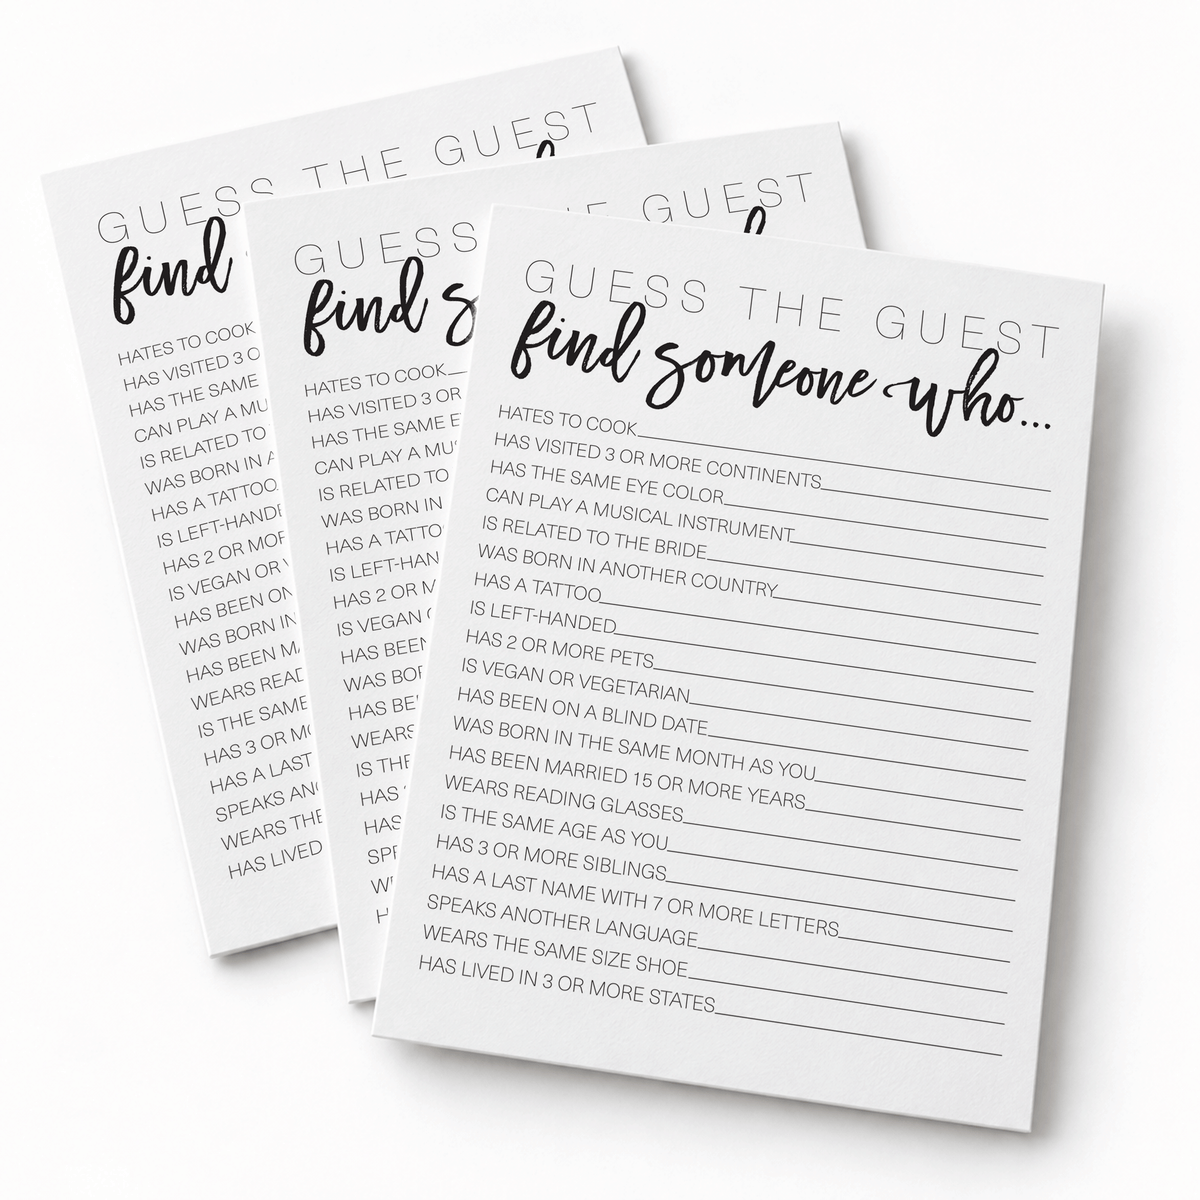 GUESS THE GUEST
find
HATES TO COOK
HAS VISITED 3
HAS THE SAME
CAN PLAY A
IS RELATED TO
WAS BORN IN
HAS A TATTOO
IS
HAS 2 OR
IS VEGAN OR
HAS BEEN ON
WAS BORN IN
HAS BEEN
WEARS
IS THE SAME
HAS 3 OR
HAS A LAST
SPEAKS
WEARS THE
HAS LIVED
GUESS GUEST
find
HATES TO COOK
HAS VISITED 3 OR
HAS THE SAME
CAN PLAY A
IS RELATED TO
WAS BORN IN
HAS A
IS
HAS 2 OR
IS VEGAN
HAS BEEN
WAS
HAS
WEARS
IS
HAS
HAS
GUESS THE GUEST
find someone who...
HATES TO COOK
HAS VISITED 3 OR MORE CONTINENTS
HAS THE SAME EYE COLOR
CAN PLAY A MUSICAL INSTRUMENT
IS RELATED TO THE BRIDE
WAS BORN IN ANOTHER COUNTRY
HAS A TATTOO
IS LEFT-HANDED
HAS 2 OR MORE PETS
IS VEGAN OR VEGETARIAN
HAS BEEN ON A BLIND DATE
WAS BORN IN THE SAME MONTH AS YOU
HAS BEEN MARRIED 15 OR MORE YEARS
WEARS READING GLASSES
IS THE SAME AGE AS YOU
HAS 3 OR MORE SIBLINGS
HAS A LAST NAME WITH 7 OR MORE LETTERS
SPEAKS ANOTHER LANGUAGE
WEARS THE SAME SIZE SHOE
HAS LIVED IN 3 OR MORE STATES